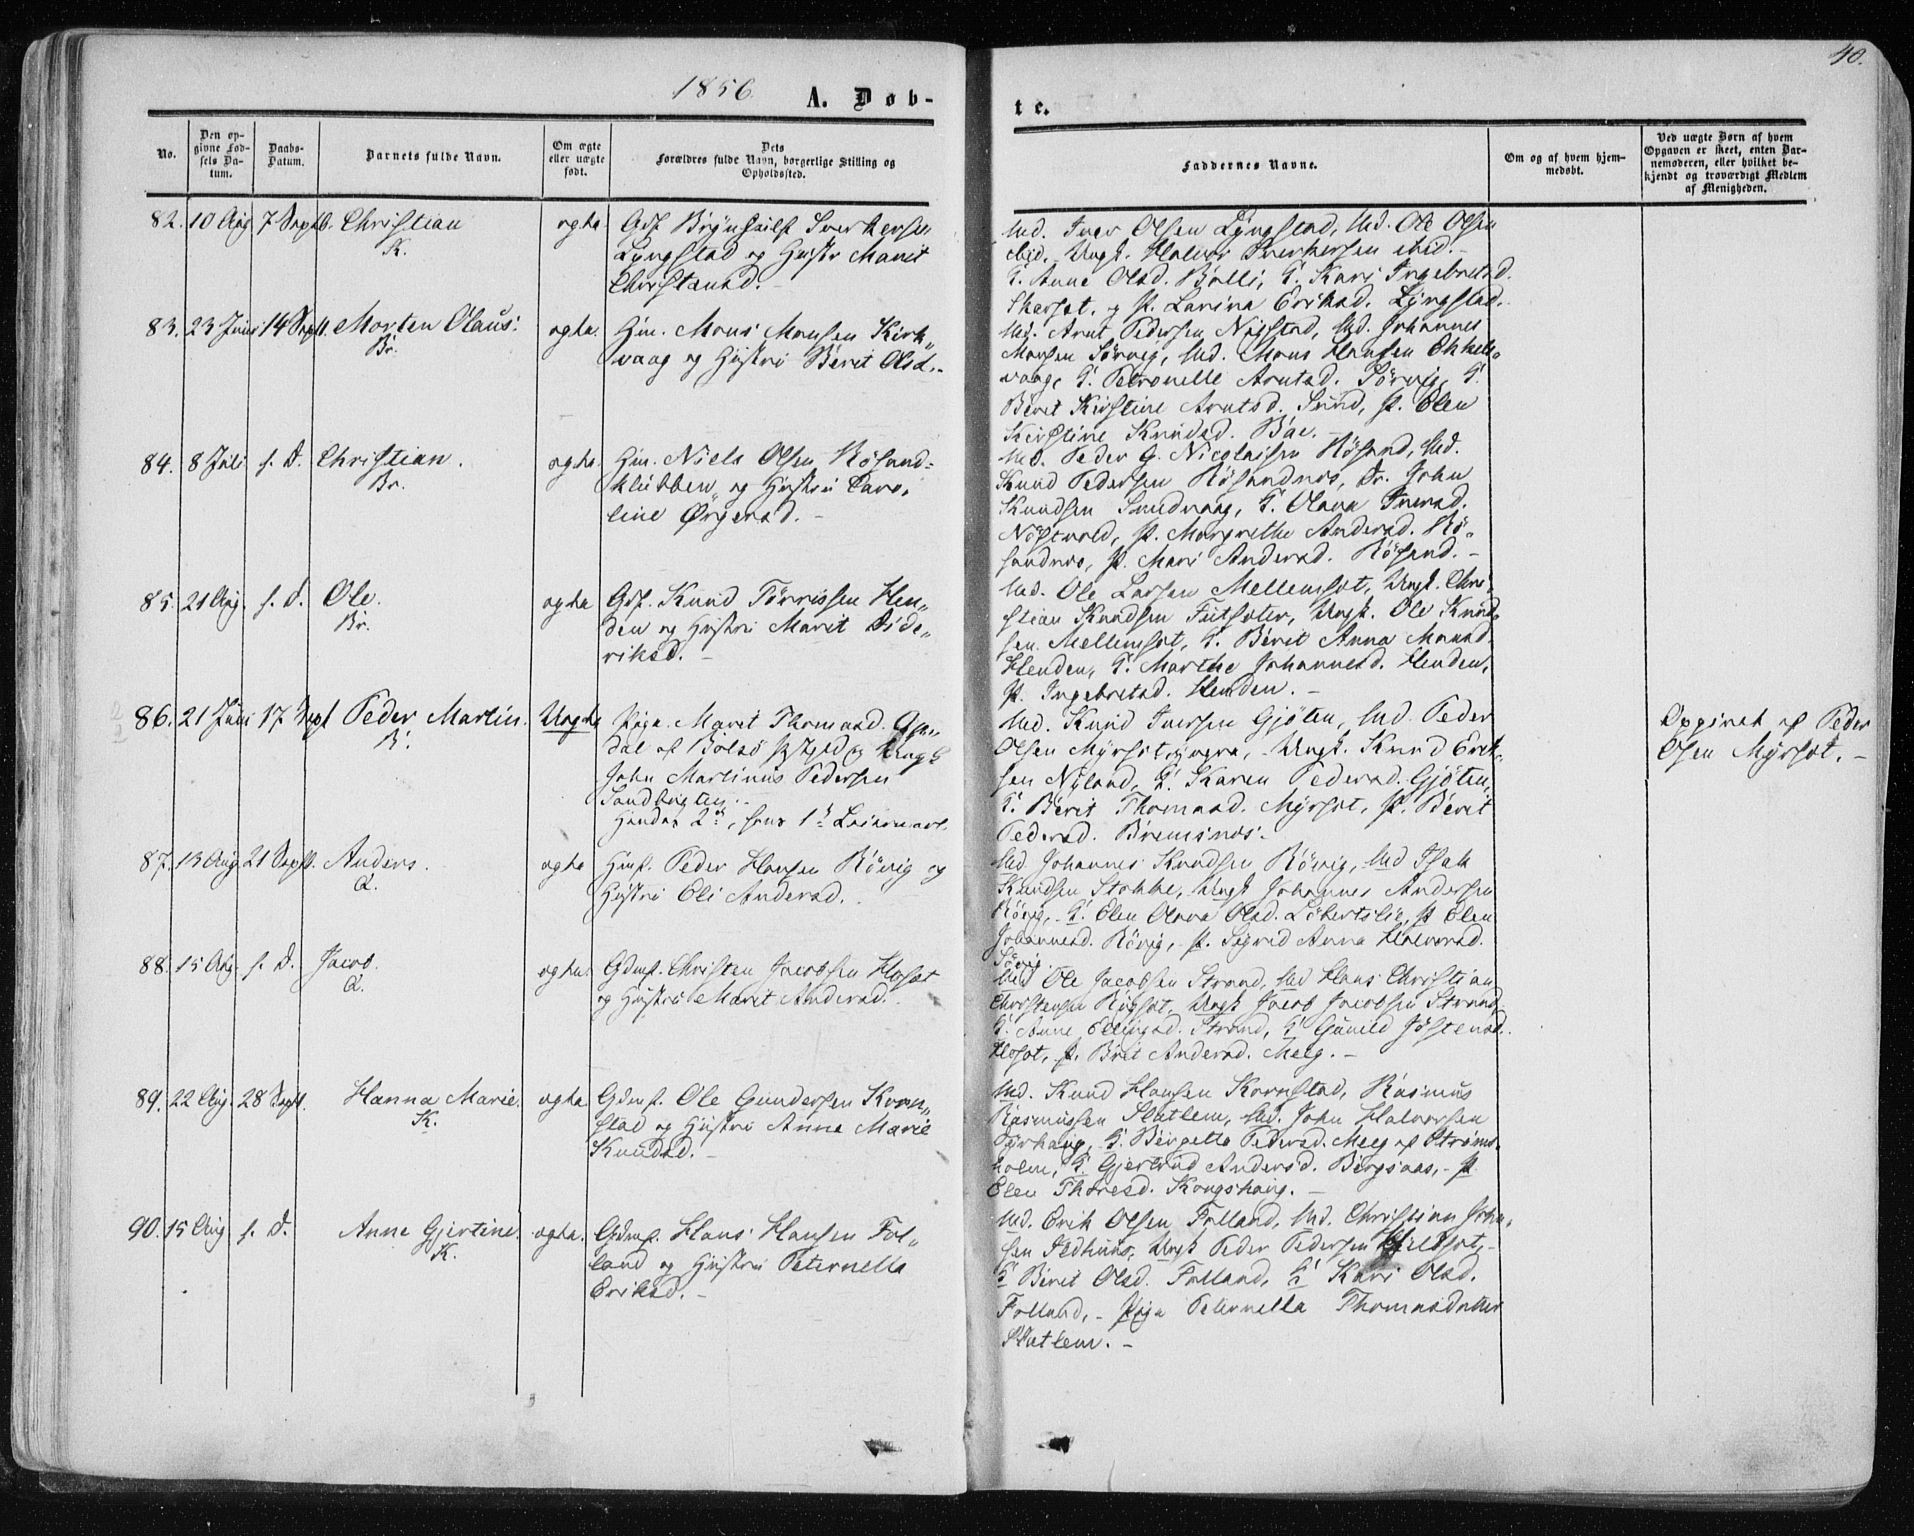 1856.
A. Døb-
te.
40.
No.
Den op-
givne Fød-
sels Da-
tum.
Daabs-
Datum.
Barnets fulde Navn.
Om ægte
eller uægte
født.
Dets
Forældres fulde Navn, borgerlige Stilling og
Opholdssted.
Faddernes Navne.
Om og af hvem hjem-
medøbt.
Ved uægte Børn af hvem
Opgaven er skeet, enten Bar-
nemoderen, eller hvilket be-
kjendt og troværdigt Medlem
af Menigheden.
82. 10 Aug 7 Septb. Christian ægte
K.
Lyngstad og Hustr Marit
Christensd.
Md. Iver Olsen Lyngstad, Md. Ole Olsen
ibid. Ungk. Halvor Sverkersen ibid. -
G. Anne Olsd. Bolli, G. Kari Ingebretsd.
P. Lavina Eriksd. Lyngstad.
83. 23 Juni 14 Septb. Morten Olaus. ægte.
Br.
Hm. Mons Monsen Kirk„
vaag og Hustru Berit Olsd. -
Md. Arnt Pedersen Nøstad, Md. Johannes
Monsen Sørvig, Md. Mons Hansen
vaag, G. Petronelle Arntsd. Sørvig, G.
Berit Kirstine Arntsd. Sund, P. Elen
Kirstine Knudsd. Bae. -
84. 8 Juli s. D. Christian. ægte
Br.
Hm. Niels Olsen Røsand-
klubben, og Hustru Caro„
line Ørgersd. -
Md. Peder G. Nicolaisen Røsand, Md.
Knud Pedersen Røsandnes, Dr. John
Knudsen Sundvaag, G. Olava Iversd.
P. Margrethe Andersd. Rø-
sandnes, P. Mari Andersd. Røsand. -
85. 21 Aug. s. D. Ole. ægte
Br.
Gdf. Knud Tørrissen Hen„
den og Hustru Marit Dide„
riksd. -
Md. Ole Larsen Mellemsæt, Ungk. Chri„
stian Knudsen Futsæter, Ungk. Ole Knud„
sen Mellemsæt, G. Berit Anna Monsd.
Henden, G. Marthe Johannesd. Henden,
P. Ingebretsd. Henden. -
86. 21 Juli 17 Sept Peder Martin. Uægte
B.
Pige. Marit Thomasd.
dal af Bolsø Ungk
John Martinus Pedersen
Sandbugten. -
Hendes 2d, hans 1te Leiermaal.
Md. Knud Iversen Gjøten, Md. Peder
Olsen Ungk. Knud Erik„
sen Nyland, G. Karen Pedersd. Gjøten,
G. Berit Thomasd. Myrsæt, P. Berit
Pedersd. Bremsnes.
Opgivet af Peder
Olsen Myrsæt. -
87. 13 Aug 21 Septb. Anders. ægte
Q.
Hmf. Peder Hansen Røvig og
Hustru Eli Andersd.
Md Johannes Knudsen Røvig, Md Isak
Knudsen Stokke, Ungk Johannes Andersen
Røvig, G. Elen Olava Olsd. P Elen
Johannesd. Røvig, - P. Sigrid Anna Halvorsd.
Sørvig.
88. 15 Aug s. D. Jacob. ægte.
Q.
Gdmf. Christen Jacobsen Hosæt
og Hustru Marit Andersd.
Md Ole Jacobsen Strand, Md Hans Christian
Christensen Ungk Jacob Jacobsen Strand,
G. Anne Ellingsd. Strand, G Gunild Jøstensd.
Hosæt, P. Brit Andersd. Meeg. -
89. 22 Aug. 28 Septb. Hanna Marie. ægte.
K.
Gdmf. Ole Gundersen Korn„
stad og Hustru Anne Marie
Knudsd. -
Md. Knud Hansen Kornstad, Rasmus
Rasmussen Slatlem, Md. John Halvorsen
G. Pedersd. Meeg af Strøms-
holm, G. Gjertrud Andersd. Bergsaas, - P
Elen Thoresd. Kongshaug. -
90. 15 Aug s. D. Anne Gjertine. ægte.
K.
Gdmf. Hans Hansen Fol„
land og Hustru Peternella
Eriksd. -
Md. Erik Olsen Folland, Md. Christian Joha„
sen Ungk Peder Pedersen
G Berit Olsd. Folland, G Kari Olsd.
Folland, - Pige Peternella Thomasdatter
Slatlem. -